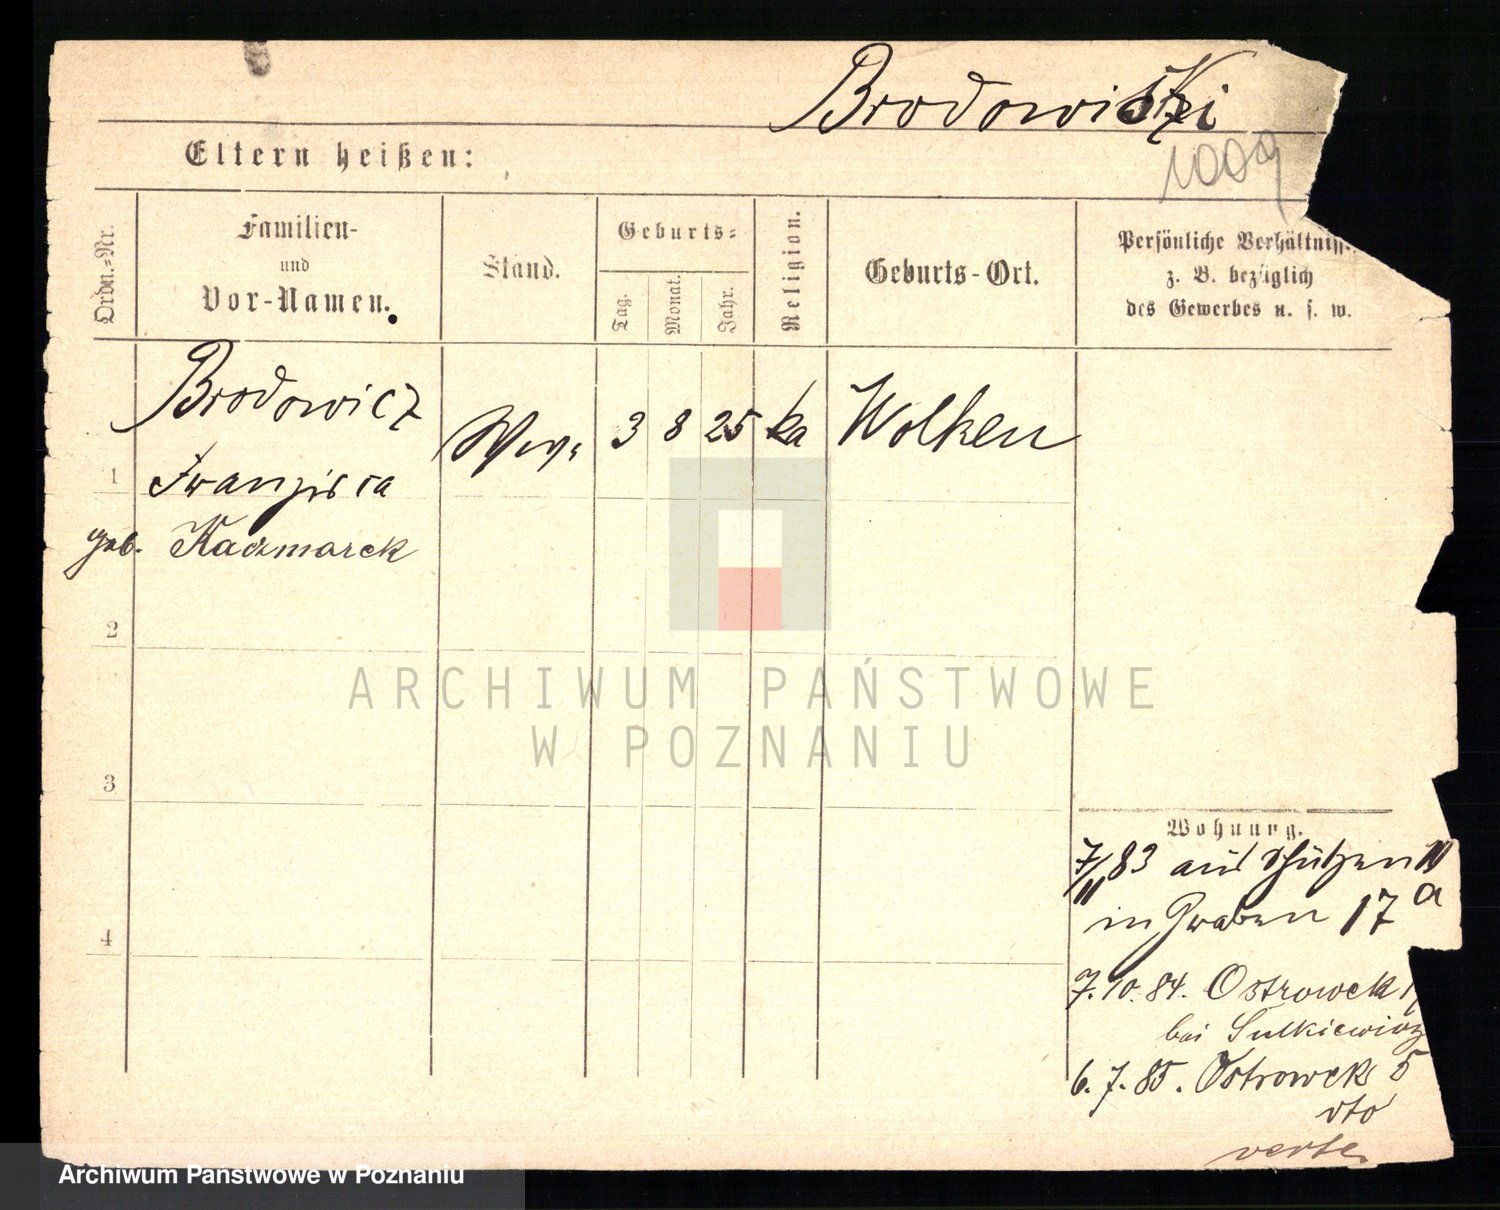 Brodowicz
1009
Eltern heißen:
Ordn.-Nr.
Familien-
und
Vor-Namen.
Stand.
Geburts-
Tag.
Monat.
Jahr.
Religion.
Geburts-Ort.
Persönliche Verhältniss
z. B. bezüglich
des Gewerbes u. s. w.
Brodowicz
3 8 25 ka Wolken
1 Franzisca
geb. Kaczmarek
2
3
4
ARCHIWUM PAŃSTWOWE
W POZNANIU
Wohnung.
7/11 83 aus Schützen
in Graben 17 a
7.10.84. Ostrowek
bei Sulkiewicz
6.7.85. Ostrowek 5
dto
verte
Archiwum Państwowe w Poznaniu